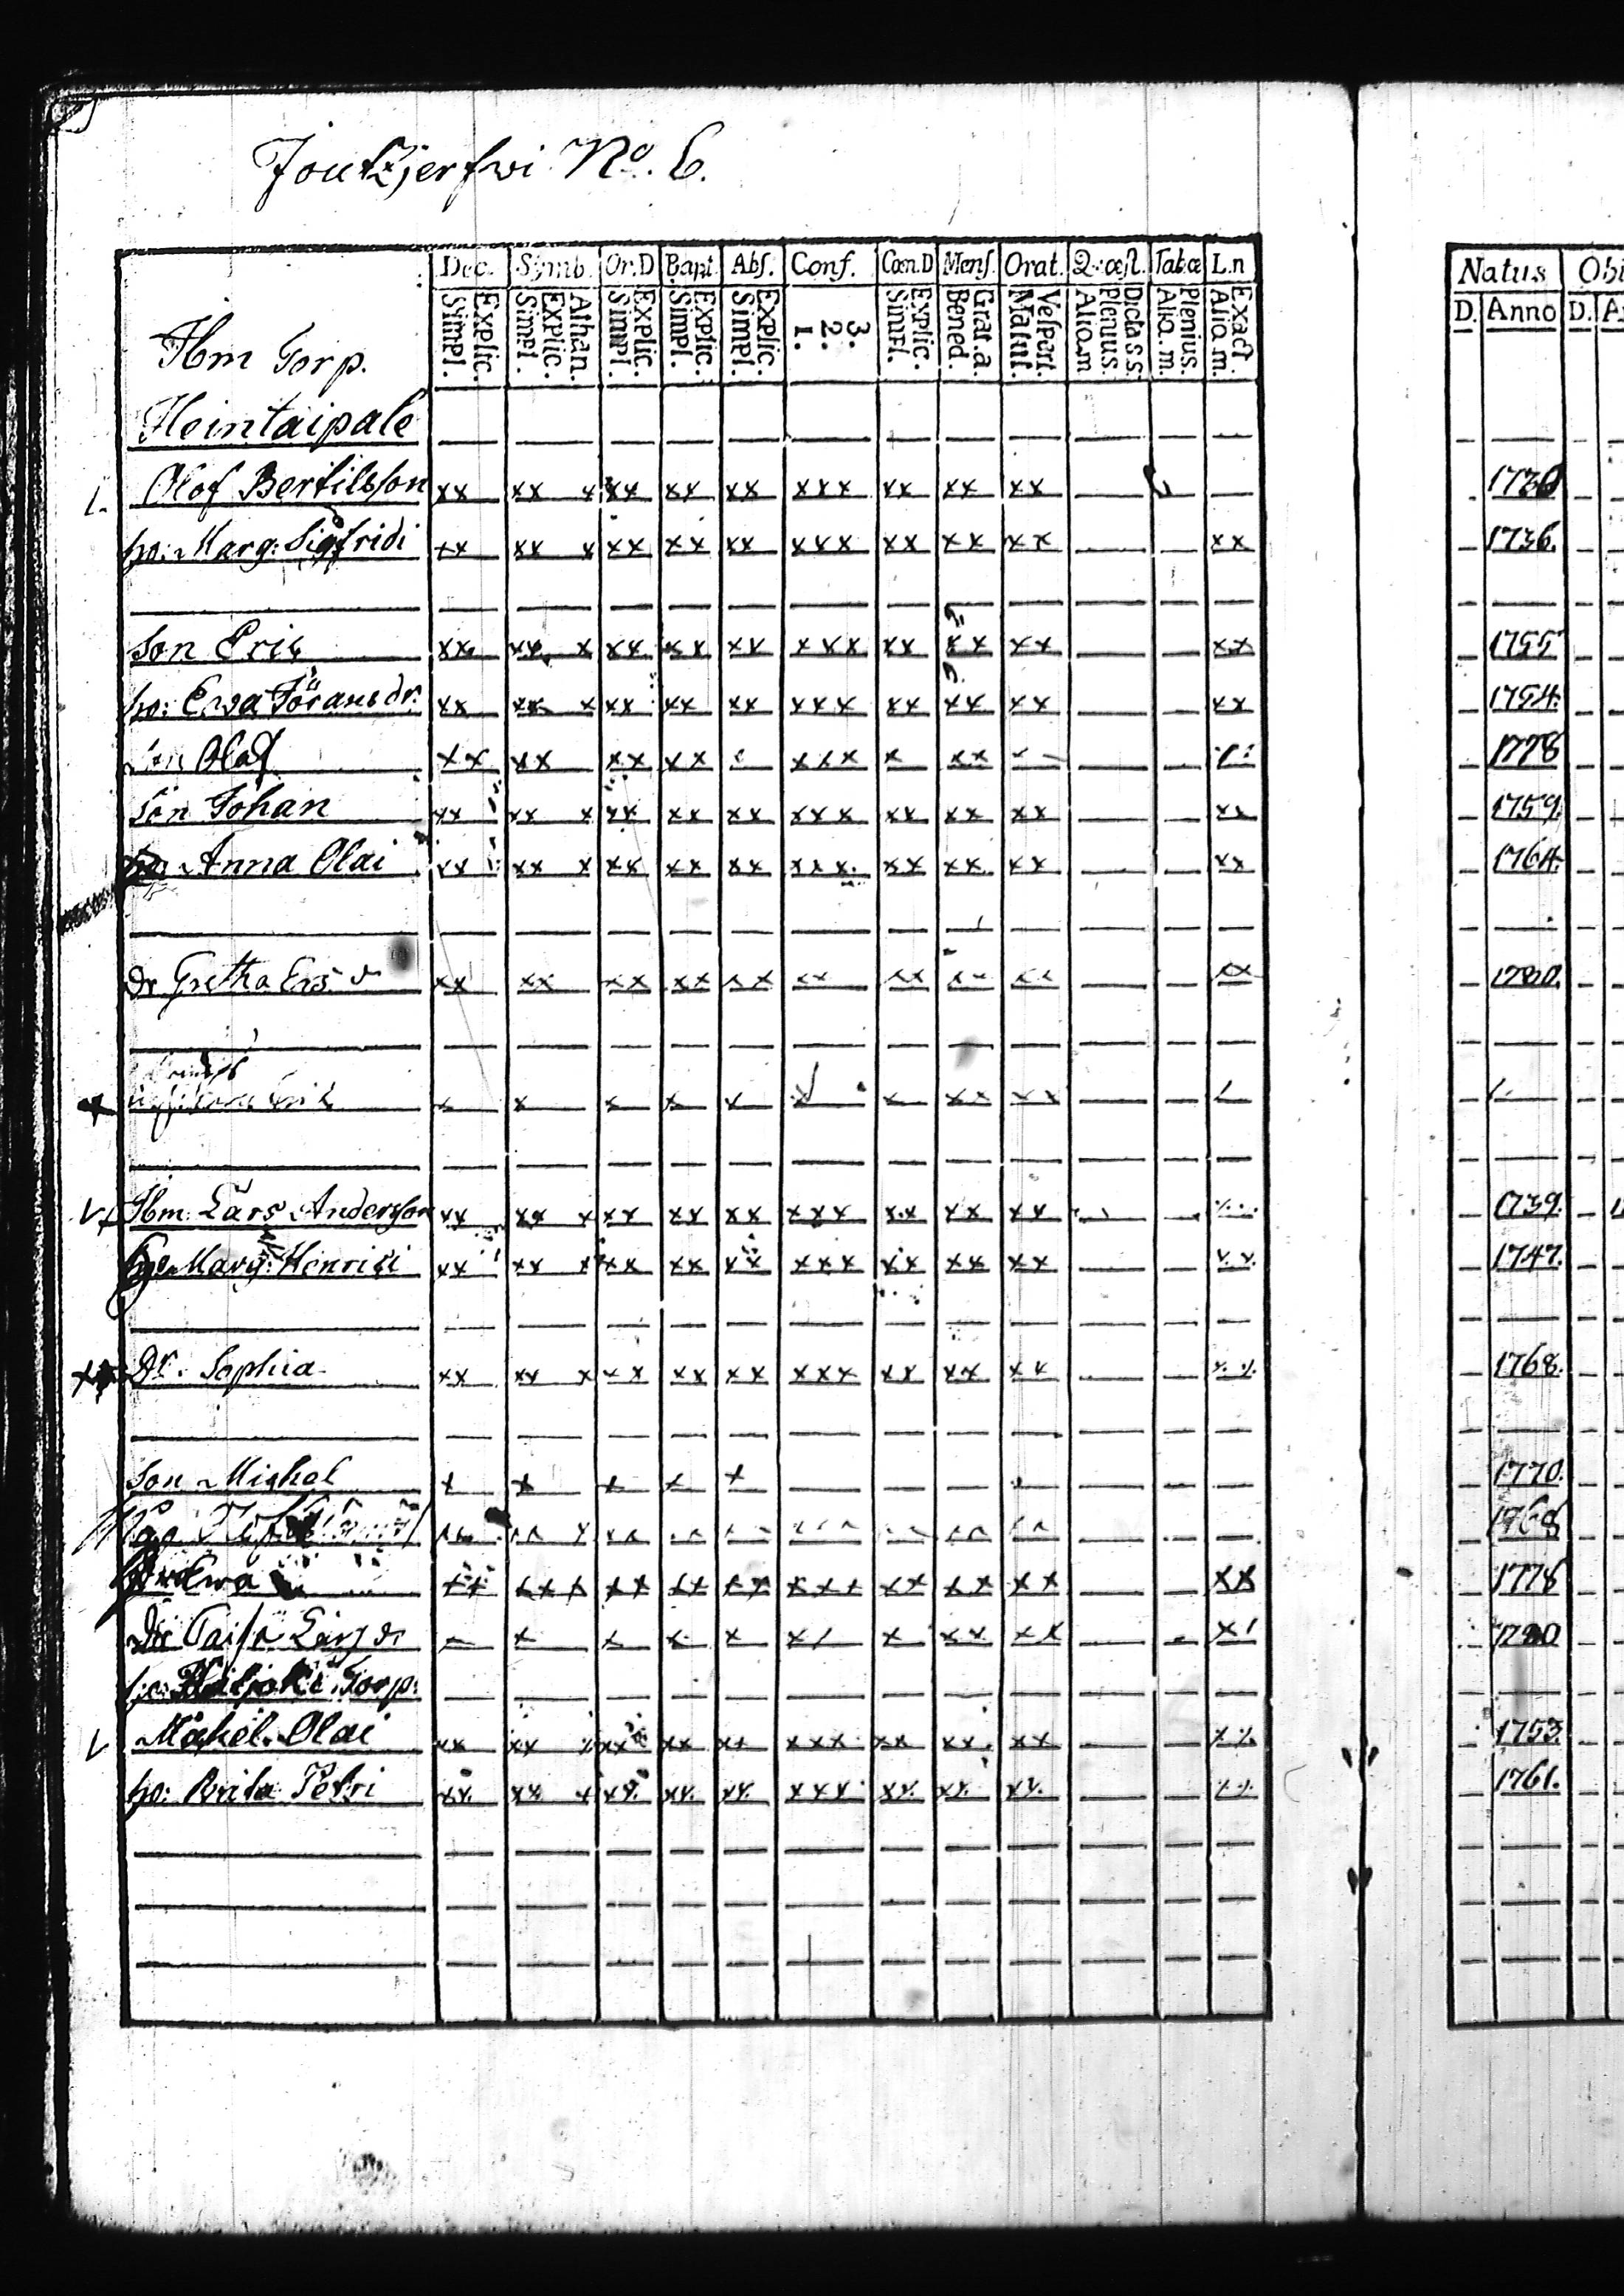 Joutzjerfwi No. 6.
Dec. Symb. Or.D Bapt. Abs. Conf. Cœn.D Mens. Orat. Quæst. Tabæ L.n Natus Obi
Explic. Simpl. Athan. Explic. Simpl. Explic. Simpl. Explic. Simpl. Explic. Simpl. 3. 2. 1. Explic. Simpl. Grat.a. Bened. Vespert. Matut. Dicta s.s. Plenius. Aliq.m Plenius. Aliq.m. Exact. Aliq.m. D. Anno D. A
Ibm Torp.
Heintaipale
Olof Bertilsson xx xx x xx xx xx xxx xx xx xx
ho: Marg: Sigfridi xx xx x xx xx xx xxx xx xx xx xx 1736.
son Eric xx xx x xx xx xx xxx xx xx xx xx 1755
ho: Ewa Göransdr. xx xx x xx xx xx xxx xx xx xx xx 1754.
son Olof xx xx xx xx xxx x xx 1778
son Johan xx xx x xx xx xx xxx xx xx xx xx 1759.
Anna Olai xx xx x xx xx xx xxx xx xx xx xx 1764.
dr Gretha Ers xx xx xx xx xx xx xx xx xx xx 1780.
x x x x x x x xx xx
Ibm Lars Andersson xx xx x xx xx xx xxx xx xx xx 1739.
Marg: Henrici xx xx x xx xx xx xxx xx xx xx x.x. 1747.
Dr. Sophia xx xx x xx xx xx xxx xx xx xx 1768.
son Michel x x x x x 1770.
1768
Ewa xx xxx xx xx xx xxx xx xx xx xx 1778
Caisa Larsdr x x x x x x xx xx
Torp.
Mickel Olai xx xx xx xx xx xxx xx xx xx 1753.
ho: Brita Petri xx xx x xx xx xx xxx xx xx xx 1761.